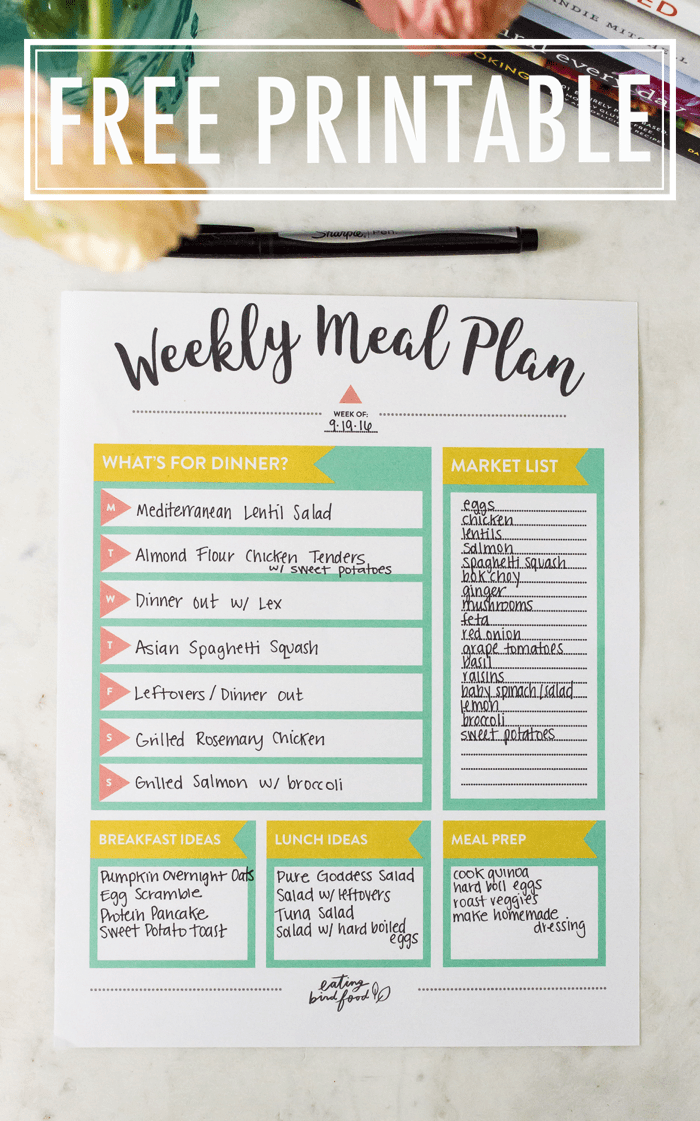 FREE PRINTABLE
ANDIE MITCHELL
Sharpie. Pen
Weekly Meal Plan
WEEK OF:
9-19-16
WHAT'S FOR DINNER?
M Mediterranean Lentil Salad
T Almond Flour Chicken Tenders
w/ sweet potatoes
W Dinner out w/ Lex
T Asian Spaghetti Squash
F Leftovers / Dinner out
S Grilled Rosemary Chicken
S Grilled Salmon w/ broccoli
MARKET LIST
eggs
chicken
lentils
salmon
spaghetti squash
bok choy
ginger
mushrooms
feta
red onion
grape tomatoes
basil
raisins
baby spinach/salad
lemon
broccoli
sweet potatoes
BREAKFAST IDEAS
Pumpkin Overnight Oats
Egg Scramble
Protein Pancake
Sweet Potato Toast
LUNCH IDEAS
Pure Goddess Salad
Salad w/ leftovers
Tuna Salad
Salad w/ hard boiled
eggs
MEAL PREP
cook quinoa
hard boil eggs
roast veggies
make homemade
dressing
eating
bird food